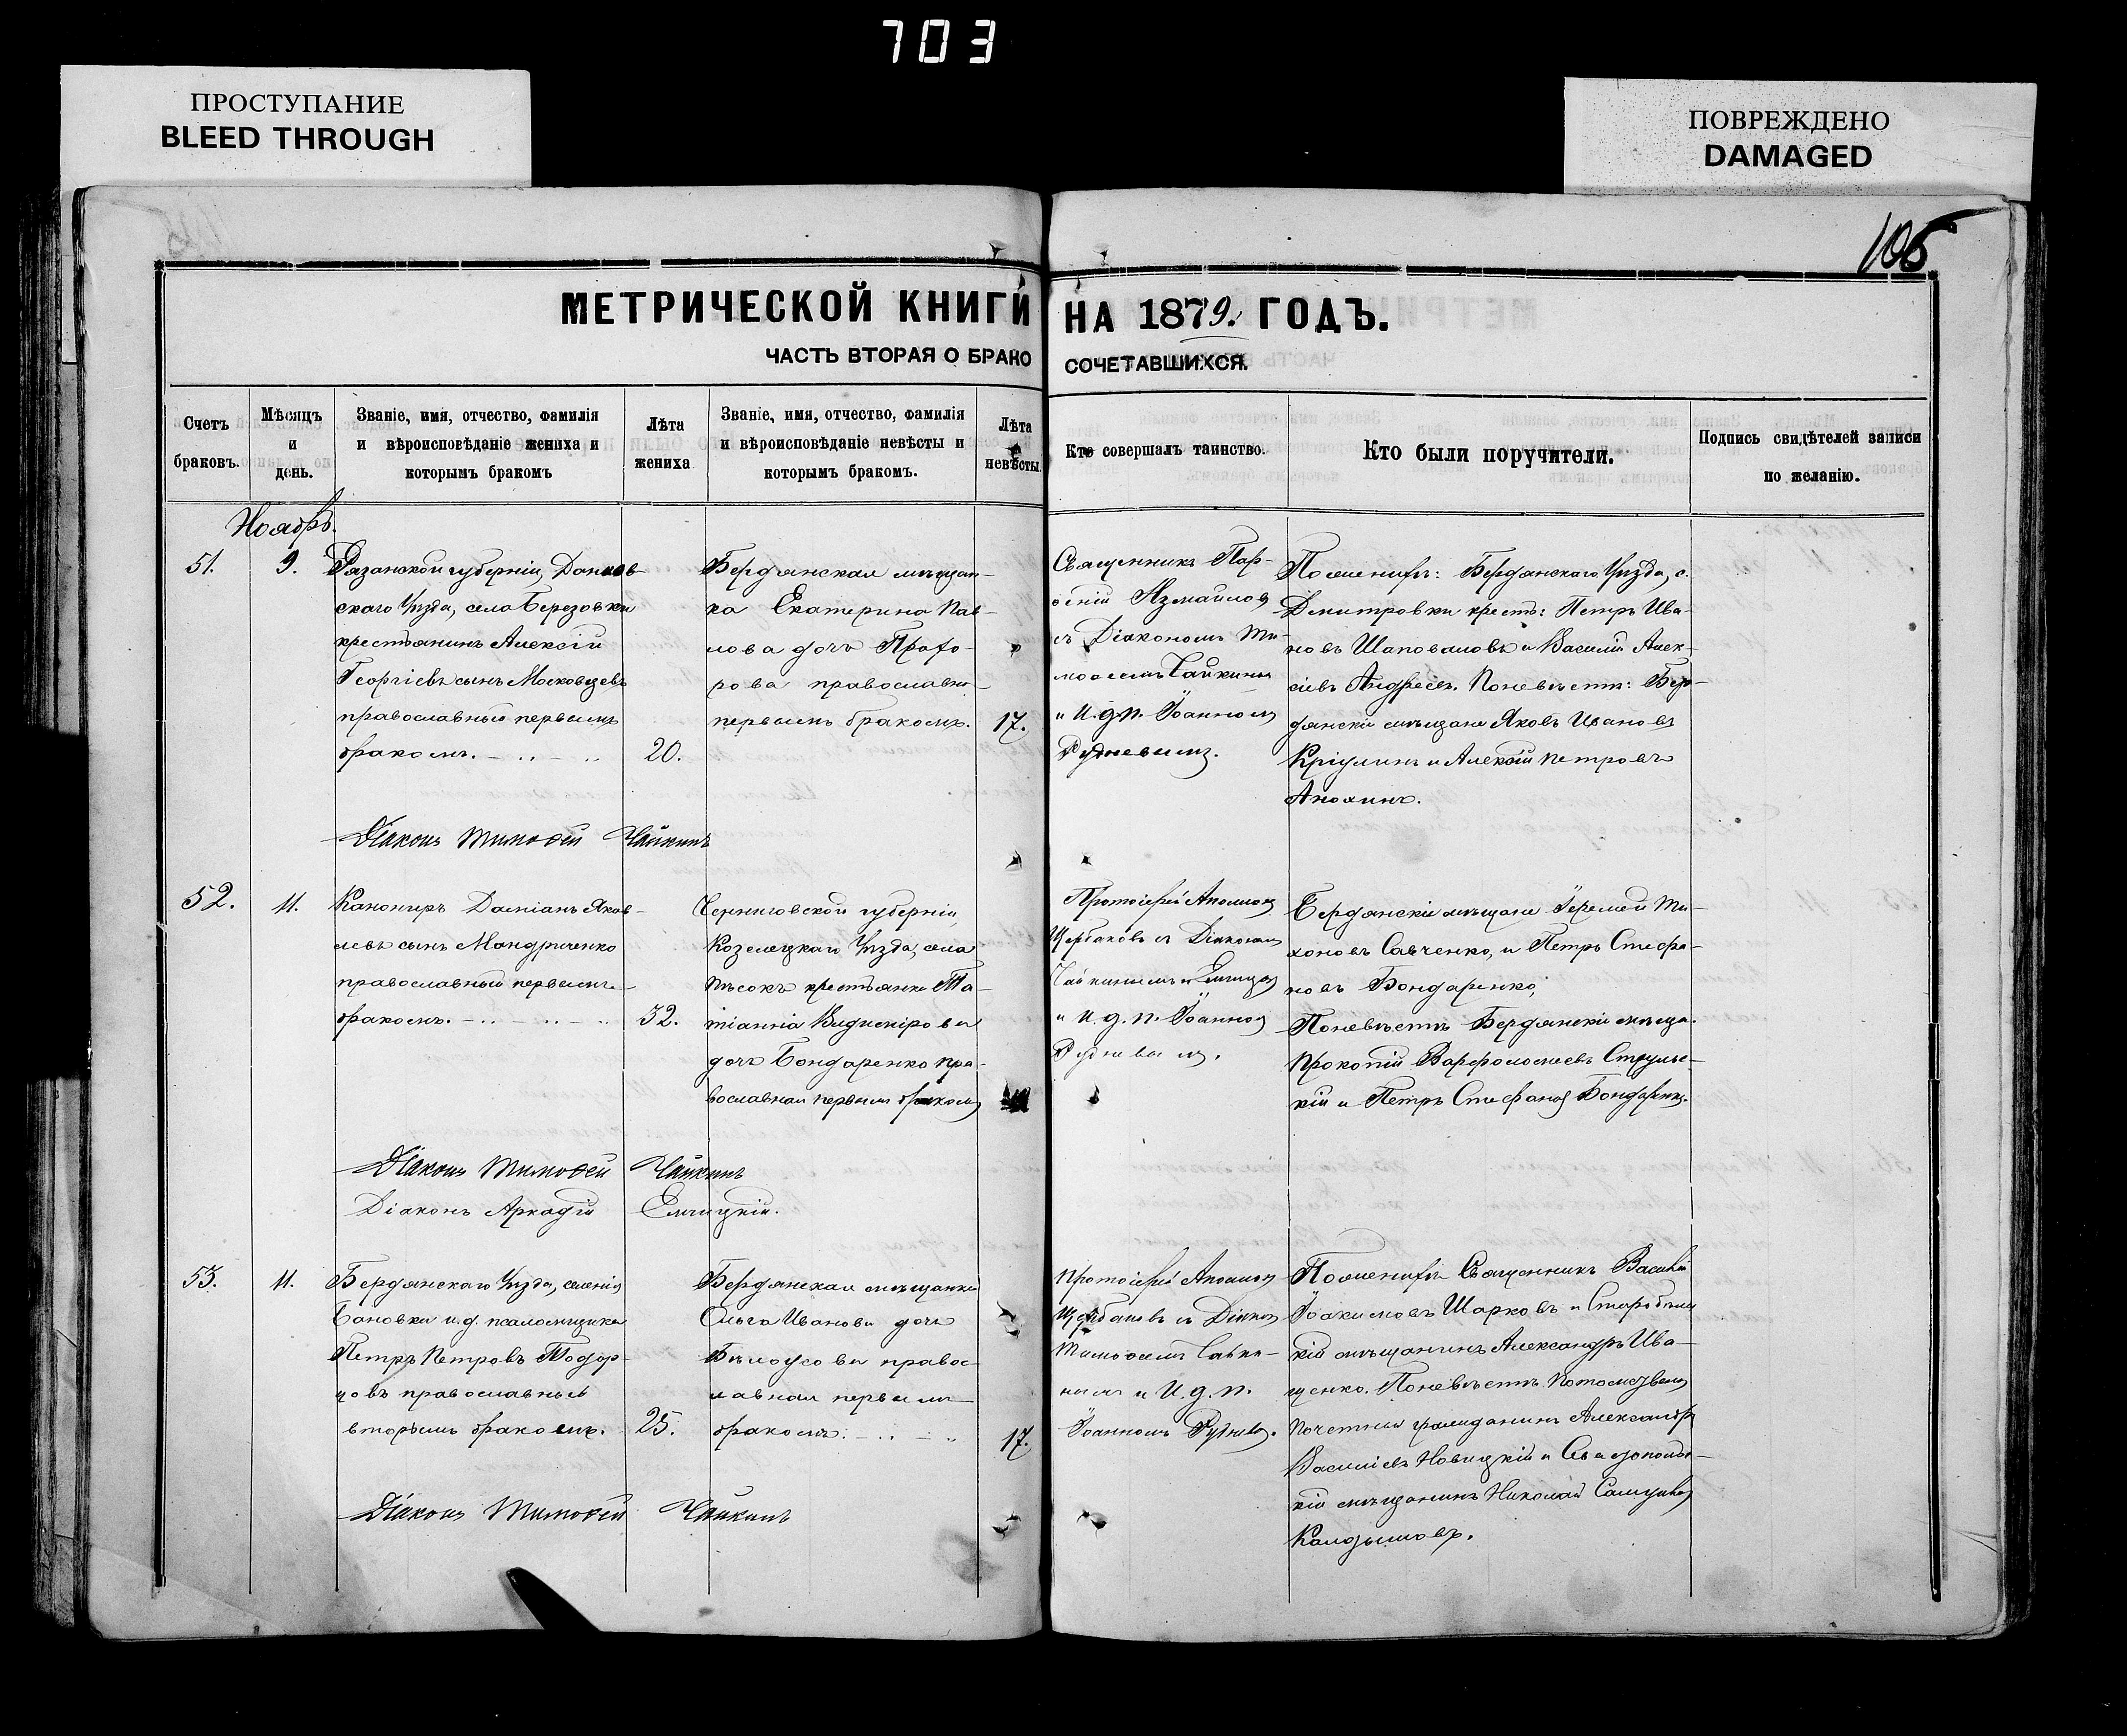 703
ПРОСТУПАНИЕ
BLEED THROUGH
ПОВРЕЖДЕНО
DAMAGED
105
МЕТРИЧЕСКОЙ КНИГИ НА 1879. ГОДЪ.
ЧАСТЬ ВТОРАЯ О БРАКОСОЧЕТАВШИХСЯ.
Счетъ
браковъ.
Мѣсяцъ
и
день.
Званіе, имя, отчество, фамилія
и вѣроисповѣданіе жениха и
которымъ бракомъ
Лѣта
жениха
Званіе, имя, отчество, фамилія
и вѣроисповѣданіе невѣсты и
которымъ бракомъ.
Лѣта
невѣсты.
Кто совершалъ таинство.
Кто были поручители.
Подпись свидѣтелей записи
по желанію.
Ноябрь.
51.
9.
Рязанской губерніи, Данков-
скаго Уѣзда, села Березовки
крестьянинъ Алексій
Георгіевъ сынъ Московцевъ
православный первымъ
бракомъ.
20.
Бердянская мѣщан-
ка Екатерина Пав-
лова дочь Прохо-
рова православн.
первымъ бракомъ.
17.
Священникъ Пар-
ѳеній Измаиловъ
съ Діакономъ Ти-
моѳеемъ Чайкинымъ
и И. д. п. Іоанномъ
Рудневымъ.
По женихѣ: Бердянскаго Уѣзда, с.
Дмитровки крест: Петръ Ива-
новъ Шаповаловъ и Василій Алек-
сіевъ Андреевъ. По невѣстѣ: Бер-
дянскіе мѣщане Яковъ Ивановъ
и Алексій Петровъ
Анохинъ.
Діаконъ Тимоѳей Чайкинъ
52.
11.
Канониръ Даміанъ Яков-
левъ сынъ Мандриченко
православный первымъ
бракомъ.
32.
Черниговской губерніи,
Козелецкаго Уѣзда, села
Пѣсокъ крестьянка Та-
тіанна Владимірова
дочь Бондаренко пра-
вославная первымъ бракомъ
Протоіерей Аполлонъ
Щербаковъ съ Діаконами
Чайкинымъ и
и И. д. п. Іоанномъ
Рудневымъ.
Бердянскіе мѣщане Іеремей Ти-
хоновъ Савченко, и Петръ Стефа-
новъ Бондаренко,
По невѣстѣ Бердянскіе мѣща.
Прокопій Варфоломеевъ
и Петръ Стефановъ Бондаренко.
Діаконъ Тимоѳей Чайкинъ
Діаконъ Аркадій
53.
11.
Бердянскаго Уѣзда, селенія
Бановки и. д. псаломщика
Петръ Петровъ Тодор-
цовъ православный
вторымъ бракомъ.
25.
Бердянская мѣщанка
Ольга Иванова дочь
Бѣлоусова правос-
лавная первымъ
бракомъ.
17.
Протоіерей Аполлонъ
Щербаковъ съ Діакон.
Тимоѳеемъ Чайки-
нымъ и И. д. п.
Іоанномъ Рудневъ.
По женихѣ Священникъ Василій
Іоакимовъ Шарковъ и Старобѣль
кій мѣщанинъ Александръ Ива-
щенко. По невѣстѣ Потомственный
почетный гражданинъ Александръ
Василіевъ Новицкій и Севастополь-
кій мѣщанинъ Николай
Діаконъ Тимоѳей Чайкинъ